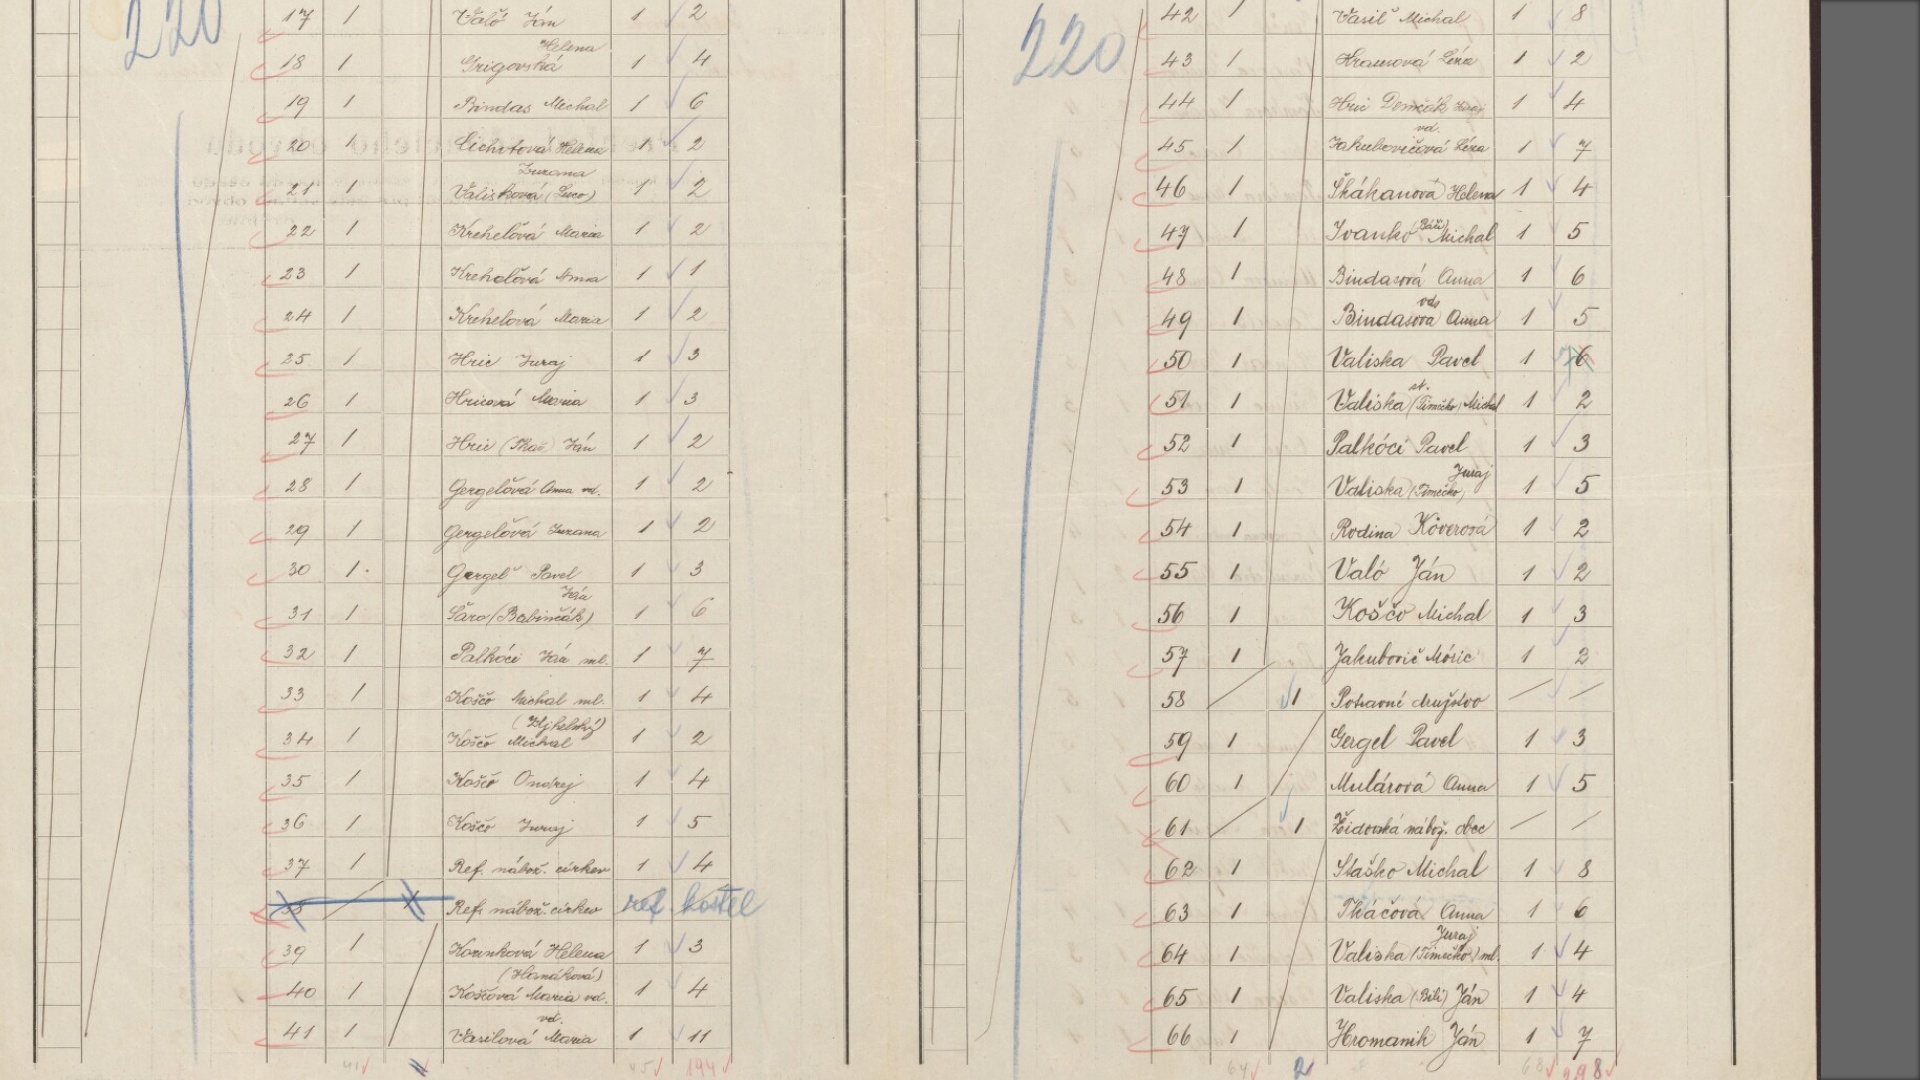 220
17 1 Valo Ján 1 2
Helena
18 1 Grigovská 1 4
19 1 Bindas Michal 1 6
20 1 Lichotová Helena 1 2
Zuzana
21 1 Valisková 1 2
22 1 Kreheľová Maria 1 2
23 1 Kreheľová Anna 1 1
24 1 Krehelová Maria 1 2
25 1 Hric Juraj 1 3
26 1 Hricová Maria 1 3
27 1 Hric Ján 1 2
28 1 Gergeľová Anna vd. 1 2
29 1 Gergeľová Zuzana 1 2
30 1 Gergeľ Pavel 1 3
Ján
31 1 Šaro (Babinčák) 1 6
32 1 Palkóci Ján ml. 1 7
33 1 Koščo Michal ml. 1 4
34 1 Koščo Michal 1 2
35 1 Koščo Ondrej 1 4
36 1 Koščo Juraj 1 5
37 1 Ref. nábož. cirkev 1 4
38 Ref. nábož. cirkev ref. kostel
39 1 Korinková Helena 1 3
(Hornáková)
40 1 Koščová Maria vd. 1 4
vd.
41 1 Vasilová Maria 1 11
194
220
42 1 Vasiľ Michal 1 8
43 1 Krausová Léza 1 2
44 1 Hric Demčák Juraj 1 4
vd.
45 1 Jakubovičová Léza 1 7
46 1 Skákanová Helena 1 4
47 1 Ivanko Michal 1 5
48 1 Bindasová Anna 1 6
vd.
49 1 Bindasová Anna 1 5
50 1 Valiska Pavel 1 6
st.
51 1 Valiska (Timečko) Michal 1 2
52 1 Palkóci Pavel 1 3
Juraj
53 1 Valiska (Timečko) 1 5
54 1 Rodina Köverová 1 2
55 1 Való Ján 1 2
56 1 Koščo Michal 1 3
57 1 Jakubovič Móric 1 2
58 1 Potravné družstvo
59 1 Gergel Pavel 1 3
60 1 Mulárová Anna 1 5
61 1 Židovská nábož. obec
62 1 Staško Michal 1 8
63 1 Tkáčová Anna 1 6
Juraj
64 1 Valiska (Timečko) ml. 1 4
65 1 Valiska (Bili) Ján 1 4
66 1 Hromanik Ján 1 7
64 2 68 298